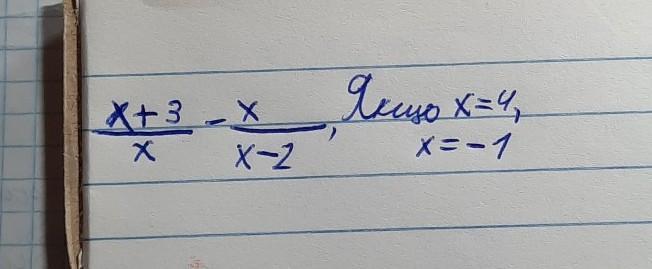 x+3/x - x/x-2, Якщо x=4,
x=-1